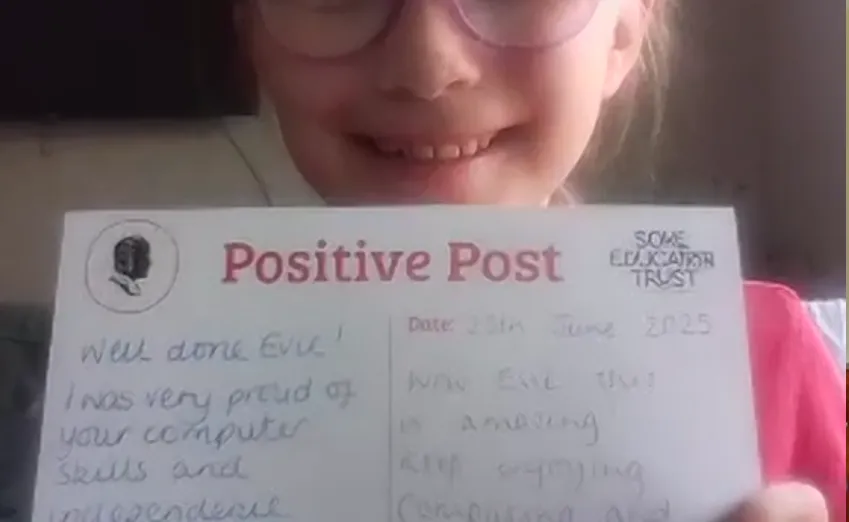 Positive Post
SOME
EDUCATION
TRUST
Well done Evie!
I was very proud of
your computer
skills and
independence
Date: 25th June 2025
Wow Evie this
is amazing
keep enjoying
computing and